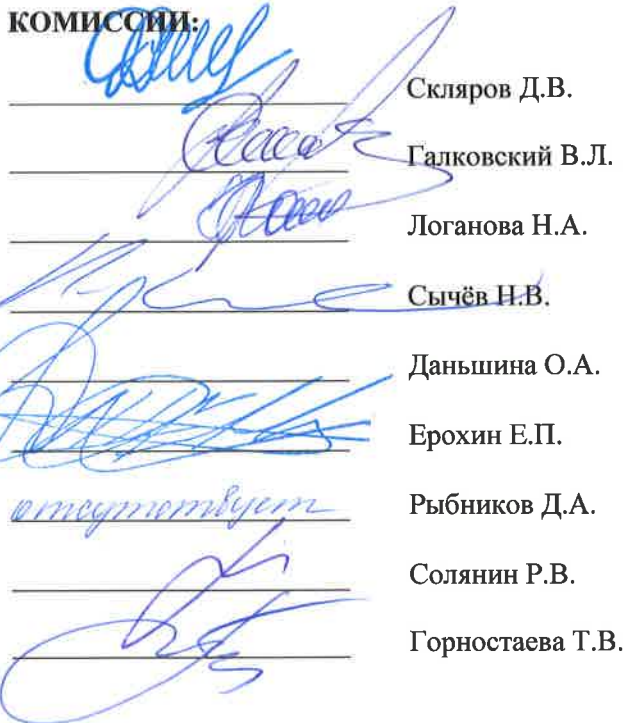 КОМИССИИ:
Скляров Д.В.
Галковский В.Л.
Логанова Н.А.
Сычёв Н.В.
Даньшина О.А.
Ерохин Е.П.
отсутствует Рыбников Д.А.
Солянин Р.В.
Горностаева Т.В.